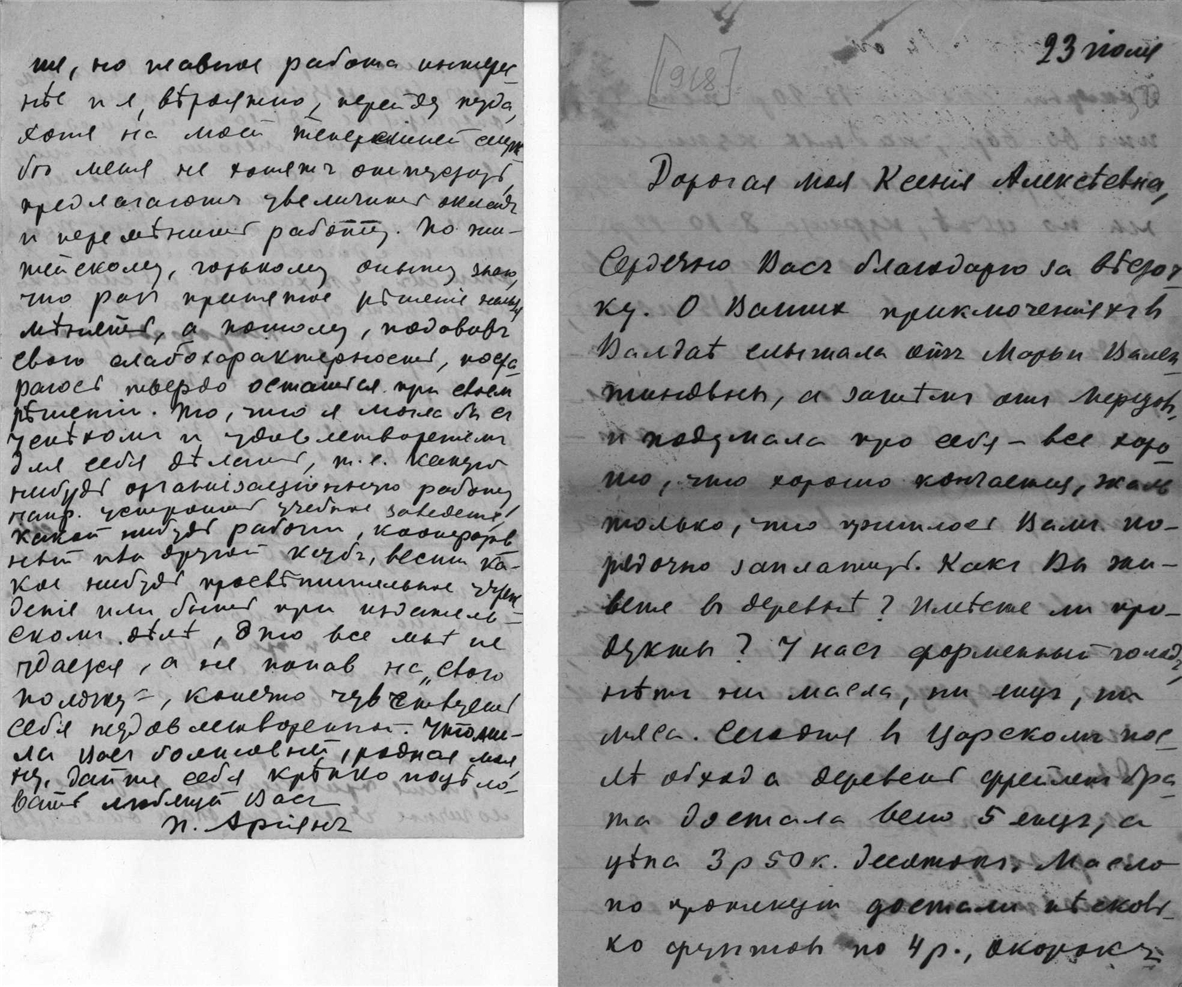 же, но главное работа интерес
нѣе и я, вѣроятно, перейду туда,
хотя на моей теперешней служ
бѣ меня не хотятъ отпускать,
предлагаютъ увеличить окладъ
и перемѣнить работу. По жи-
тейскому, горькому опыту знаю,
что раз принятое рѣшенiе нельзя
мѣнять, а потому, подавив
свою слабохарактерность, поста
раюсь твердо остаться при своем
рѣшенiи. То, что я могла бы съ
успѣхомъ и удовлетворенiемъ
для себя дѣлать, т.е. какую
нибудь организацiонную работу
напр. устроить учебное заведенiе,
какой нибудь рабочiй, кооператив
ный или другой клубъ, вести ка-
кое нибудь просвѣтительное учреж
денiе или быть при издатель-
скомъ дѣлѣ, это все мнѣ не
удается, а не попав на „свою
полочку", конечно чувствуешь
себя неудовлетворенной. Утоми-
ла Васъ болтовней, родная моя
ну, дайте себя крѣпко поцѣло-
вать любящей Васъ
П. Арiянъ
[1918]
23 iюля
Дорогая моя Ксенiя Алексѣевна,
Сердечно Васъ благодарю за вѣсточ
ку. О Вашихъ приключенiяхъ в
Валдаѣ слышала отъ Марьи Вален
тиновны, а затѣмъ отъ
и подумала про себя – все хоро
шо, что хорошо кончается, жаль
только, что пришлось Вамъ по-
рядочно заплатить. Какъ Вы жи-
вете в деревнѣ? Имѣете ли про-
дукты? У насъ форменный голодъ,
нѣтъ ни масла, ни яицъ, ни
мяса. Сегодня в Царскомъ пос-
лѣ обхода деревень бра
та достала всего 5 яицъ, а
цѣна 3 р 50 к. десятокъ. Масло
по протекцiи достали нѣсколь
ко фунтов по 4 р., окорокъ